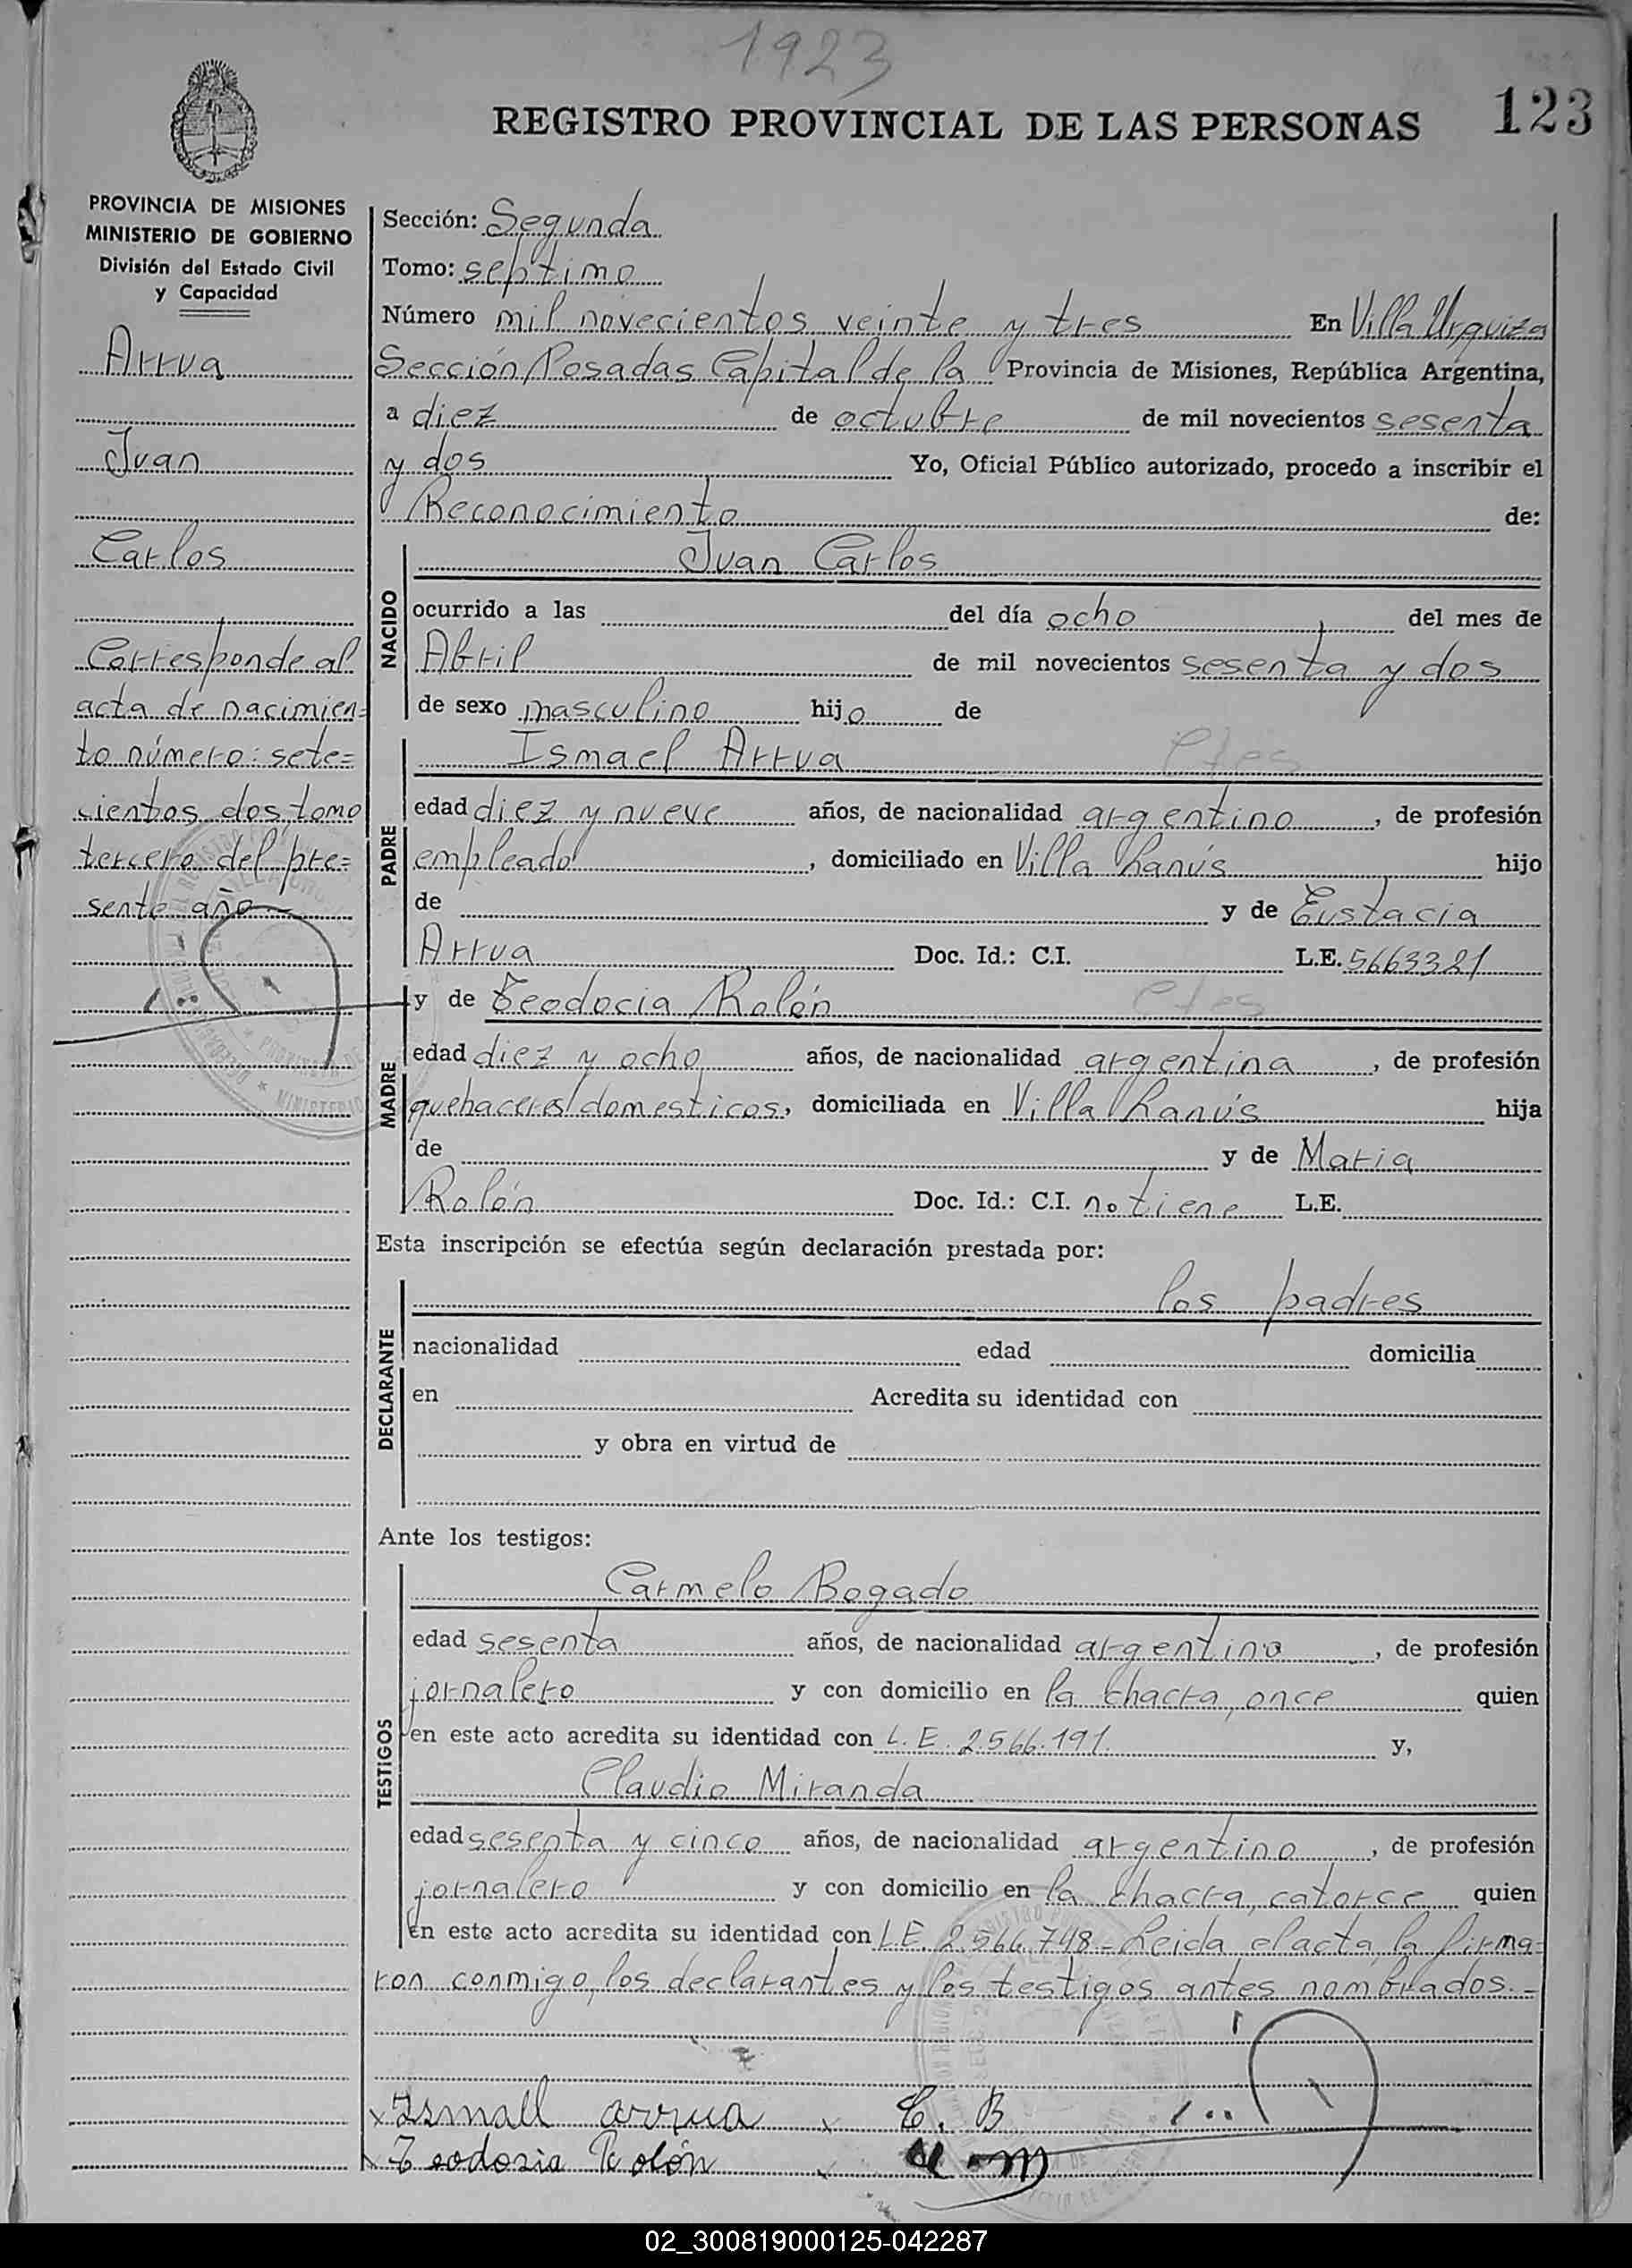 1923
REGISTRO PROVINCIAL DE LAS PERSONAS 123
PROVINCIA DE MISIONES
MINISTERIO DE GOBIERNO
División del Estado Civil
y Capacidad
Arrua
Juan
Carlos
Corresponde al
acta de nacimien=
to número: sete=
cientos dos, tomo
tercero del pre=
sente año
Sección: Segunda
Tomo: septimo
Número mil novecientos veinte y tres En Villa Urquiza
Sección Posadas Capital de la Provincia de Misiones, República Argentina,
a diez de octubre de mil novecientos sesenta
y dos Yo, Oficial Público autorizado, procedo a inscribir el
Reconocimiento de:
NACIDO
Juan Carlos
ocurrido a las del día ocho del mes de
Abril de mil novecientos sesenta y dos
de sexo masculino hijo de
PADRE
Ismael Arrua
edad diez y nueve años, de nacionalidad argentino, de profesión
empleado, domiciliado en Villa Lanús hijo
de y de Eustacia
Arrua Doc. Id.: C.I. L.E. 5663321
MADRE
y de Teodocia Rolón
edad diez y ocho años, de nacionalidad argentina, de profesión
quehaceres domesticos, domiciliada en Villa Lanús hija
de y de Maria
Rolón Doc. Id.: C.I. no tiene L.E.
Esta inscripción se efectúa según declaración prestada por:
DECLARANTE
los padres
nacionalidad edad domicilia
en Acredita su identidad con
y obra en virtud de
Ante los testigos:
TESTIGOS
Carmelo Bogado
edad sesenta años, de nacionalidad argentino, de profesión
jornalero y con domicilio en la chacra once quien
en este acto acredita su identidad con L.E. 2.566.191 y,
Claudio Miranda
edad sesenta y cinco años, de nacionalidad argentino, de profesión
jornalero y con domicilio en la chacra catorce quien
en este acto acredita su identidad con L.E. 2.566.748 - Leida el acta, la firma=
ron conmigo, los declarantes y los testigos antes nombrados.=
x Ismall arrua x C. B
x Teodosia Rolón
02_300819000125-042287